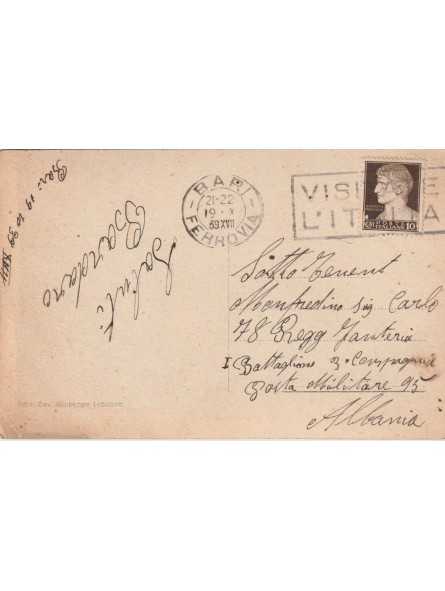 Bari 19 10 39 XVII
Saluti
BARI
21-22
19 X
39 XVII
FERROVIA
VISI TE
L'IT A
10
Sotto Tenent
Manfredino sig. Carlo
78 Regg Fanteria
I Battaglione 3 Compagnia
Posta Militare 95
Albania